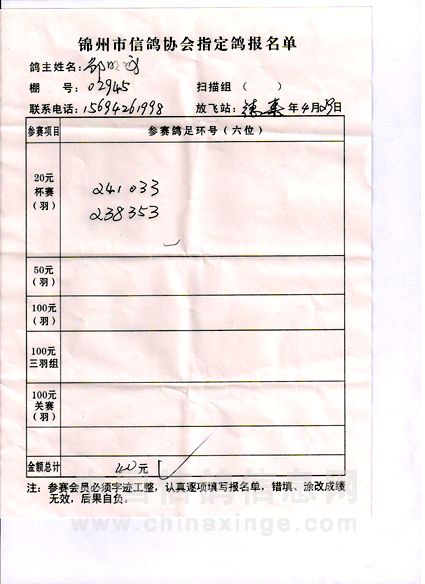 锦州市信鸽协会指定鸽报名单
鸽主姓名:
棚 号: 02945 扫描组 ( )
联系电话: 15694261998 放飞站: 年4月29日
参赛项目 参赛鸽足环号(六位)
20元
杯赛
(羽)
241033
238353
50元
(羽)
100元
(羽)
100元
三羽组
100元
关赛
(羽)
金额总计 40元
注: 参赛会员必须字迹工整, 认真逐项填写报名单, 错填、涂改成绩
无效, 后果自负。
中国信鸽信息网
www.chinaxinge.com